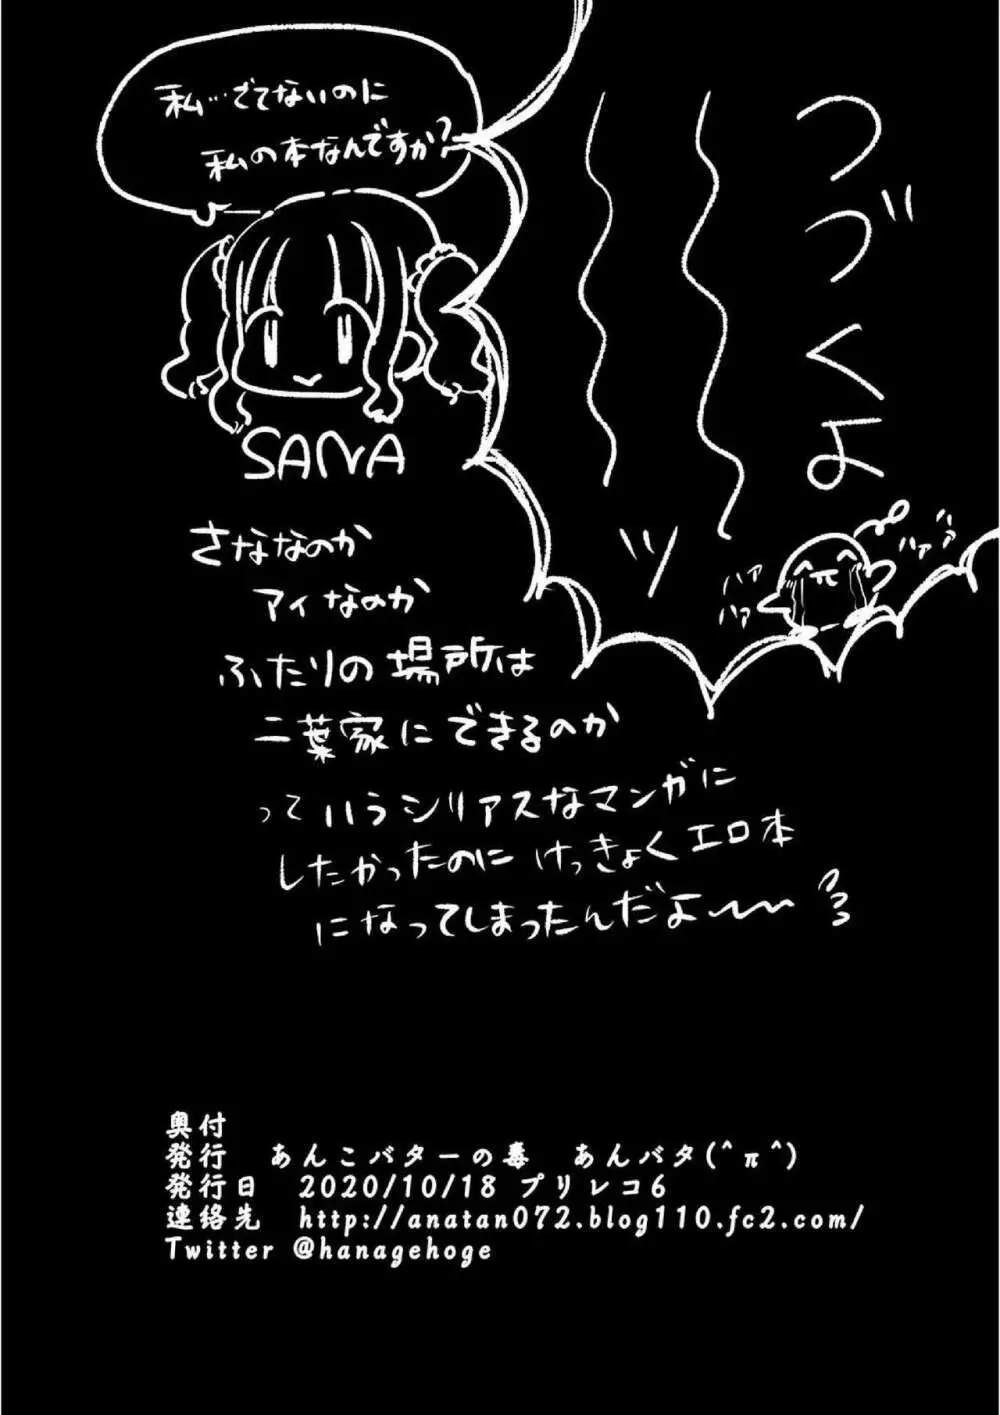 つづくよ
ハァ
ハァ
ハァ
ハァ
私…でてないのに
私の本なんですか?
SANA
さななのか
アイなのか
ふたりの場所は
二葉家にできるのか
っていうシリアスなマンガに
したかったのにけっきょくエロ本
になってしまったんだよ〜〜
奥付
発行　あんこバターの毒　あんバタ(^π^)
発行日　2020/10/18 プリレコ6
連絡先　http://anatan072.blog110.fc2.com/
Twitter @hanagehoge